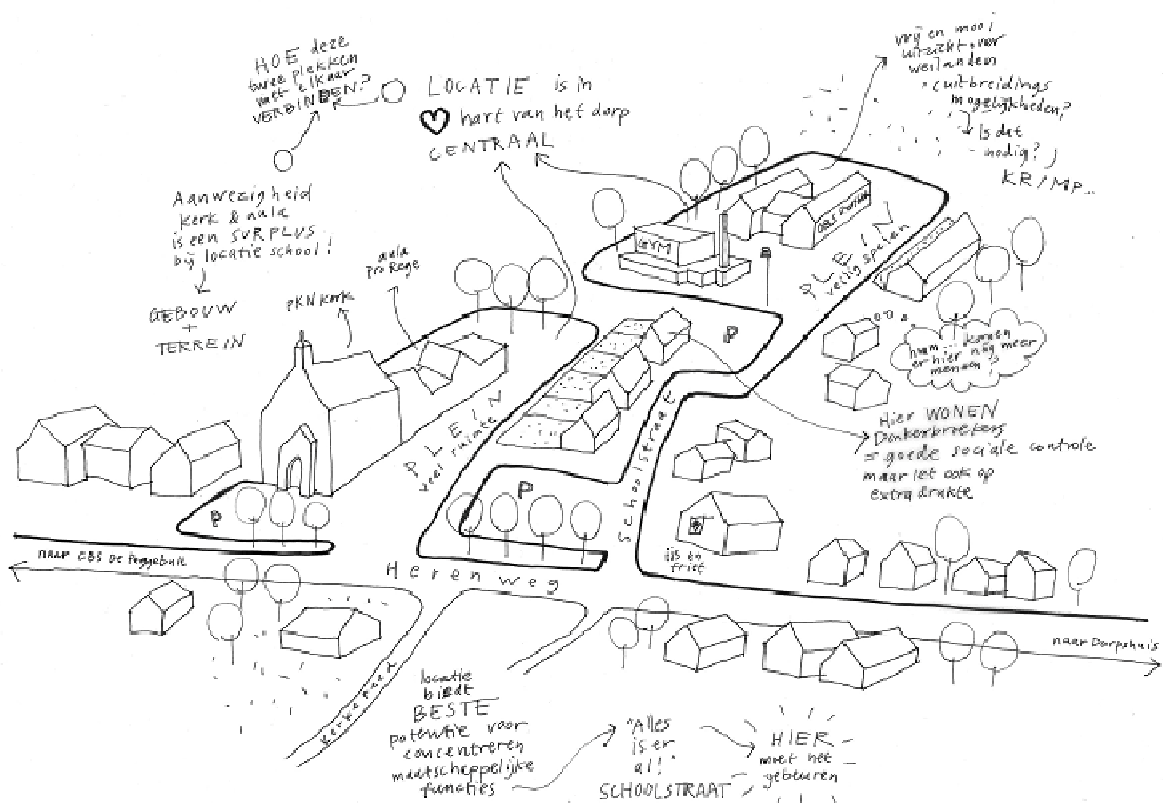 HOE deze
twee plekken
met elkaar
VERBINDEN?
LOCATIE is in
hart van het dorp
CENTRAAL
vrij en mooi
uitzicht over
weilanden
(uitbreidings
mogelijkheden?
Is dat
nodig?)
KR/MP..
Aanwezigheid
kerk & aula
is een SURPLUS
bij locatie school!
GEBOUW
+
TERREIN
PKN kerk
aula
Pro Rege
GYM
PLEIN
veilig spelen
P
hmm.. komen
er hier nog meer
mensen?
Hier WONEN
= goede sociale controle
maar let ook op
extra drukte
PLEIN
veel ruimte
P
P
Schoolstraat
ijs en
friet
naar CBS De Peggebult
Herenweg
naar Dorpshuis
Kerkepad
locatie
biedt
BESTE
potentie voor
concentreren
maatschappelijke
functies
"Alles
is er
al!"
SCHOOLSTRAAT
HIER
moet het
gebeuren